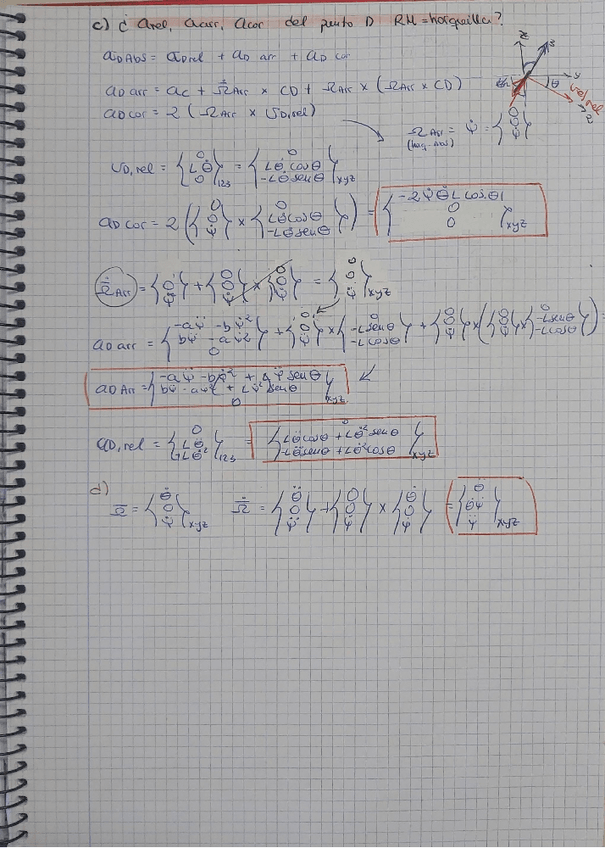 c) ¿ arel, aarr, acor del punto D RM = horquilla?
aDAbs = aDrel + aD arr + aD cor
aD arr = ac + Ω̇Arr × CD + ΩArr × (ΩArr × CD)
aDcor = 2 (ΩArr × vD,rel)
ΩArr = ψ̇ = {0 0 ψ̇}
vD,rel = {0 Lθ̇ 0}123 = {0 Lθ̇ cosθ -Lθ̇ senθ}xyz
aD cor = 2 ({0 0 ψ̇} × {0 Lθ̇ cosθ -Lθ̇ senθ}) = {-2ψ̇θ̇L cosθ 0 0}xyz
Ω̇Arr = {0 0 ψ̈} + {0 0 ψ̇} × {0 0 ψ̇} = {0 0 ψ̈}xyz
aD arr = {-aψ̈ -bψ̇² bψ̈ -aψ̇² 0} + {0 0 ψ̈} × {0 -Lsenθ -Lcosθ} + {0 0 ψ̇} × ({0 0 ψ̇} × {0 -Lsenθ -Lcosθ}) =
aD Arr = {-aψ̈ -bψ̇² + Lψ̈ senθ bψ̈ -aψ̇² + Lψ̇² senθ 0}xyz
aD,rel = {0 Lθ̈ Lθ̇²}123 = {0 Lθ̈cosθ + Lθ̇² senθ -Lθ̈senθ + Lθ̇²cosθ}xyz
d)
Ω̄ = {θ̇ 0 ψ̇}xyz Ω̄̇ = {θ̈ 0 ψ̈} + {0 0 ψ̇} × {θ̇ 0 ψ̇} = {θ̈ θ̇ψ̇ ψ̈}xyz